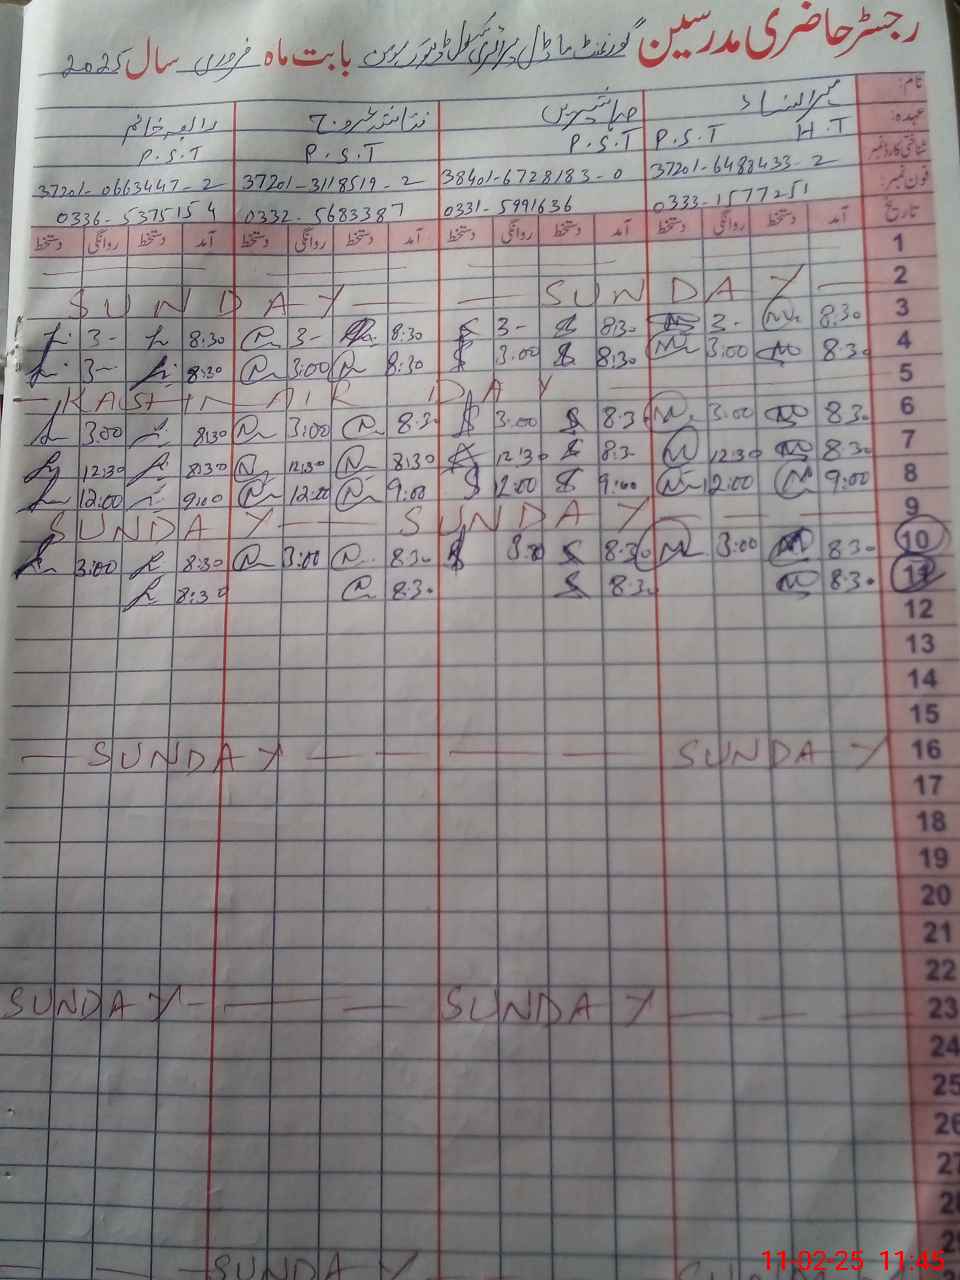 رجسٹر حاضری مدرسین گورنمنٹ ماڈل پرائمری سکول بابت ماہ فروری سال 2025
نام:
عہدہ: H.T P.S.T P.S.T P.S.T P.S.T
شناختی کارڈ نمبر 37201-6488433-2 38401-6728183-0 37201-3118519-2 37201-0663447-2
فون نمبر: 0333-1577251 0331-5991636 0332-5683387 0336-5375154
تاریخ آمد دستخط روانگی دستخط آمد دستخط روانگی دستخط آمد دستخط روانگی دستخط آمد دستخط روانگی دستخط
1
2 SUNDAY SUNDAY
3 8:30 3- 8:30 3- 8:30 3- 8:30 3-
4 8:30 3:00 8:30 3:00 8:30 3:00 8:30 3-
5 KASHMIR DAY
6 8:30 3:00 8:30 3:00 8:30 3:00 8:30 3:00
7 8:30 12:30 8:3- 12:30 8:30 12:30 8:30 12:30
8 9:00 12:00 9:00 12:00 9:00 12:00 9:00 12:00
9 SUNDAY SUNDAY
10 8:30 3:00 8:30 3:00 8:30 3:00 8:30 3:00
11 8:30 8:30 8:30 8:30
12
13
14
15
16 SUNDAY SUNDAY
17
18
19
20
21
22
23 SUNDAY SUNDAY
24
25
26
27
28
29
SUNDAY SUNDAY
11-02-25 11:45